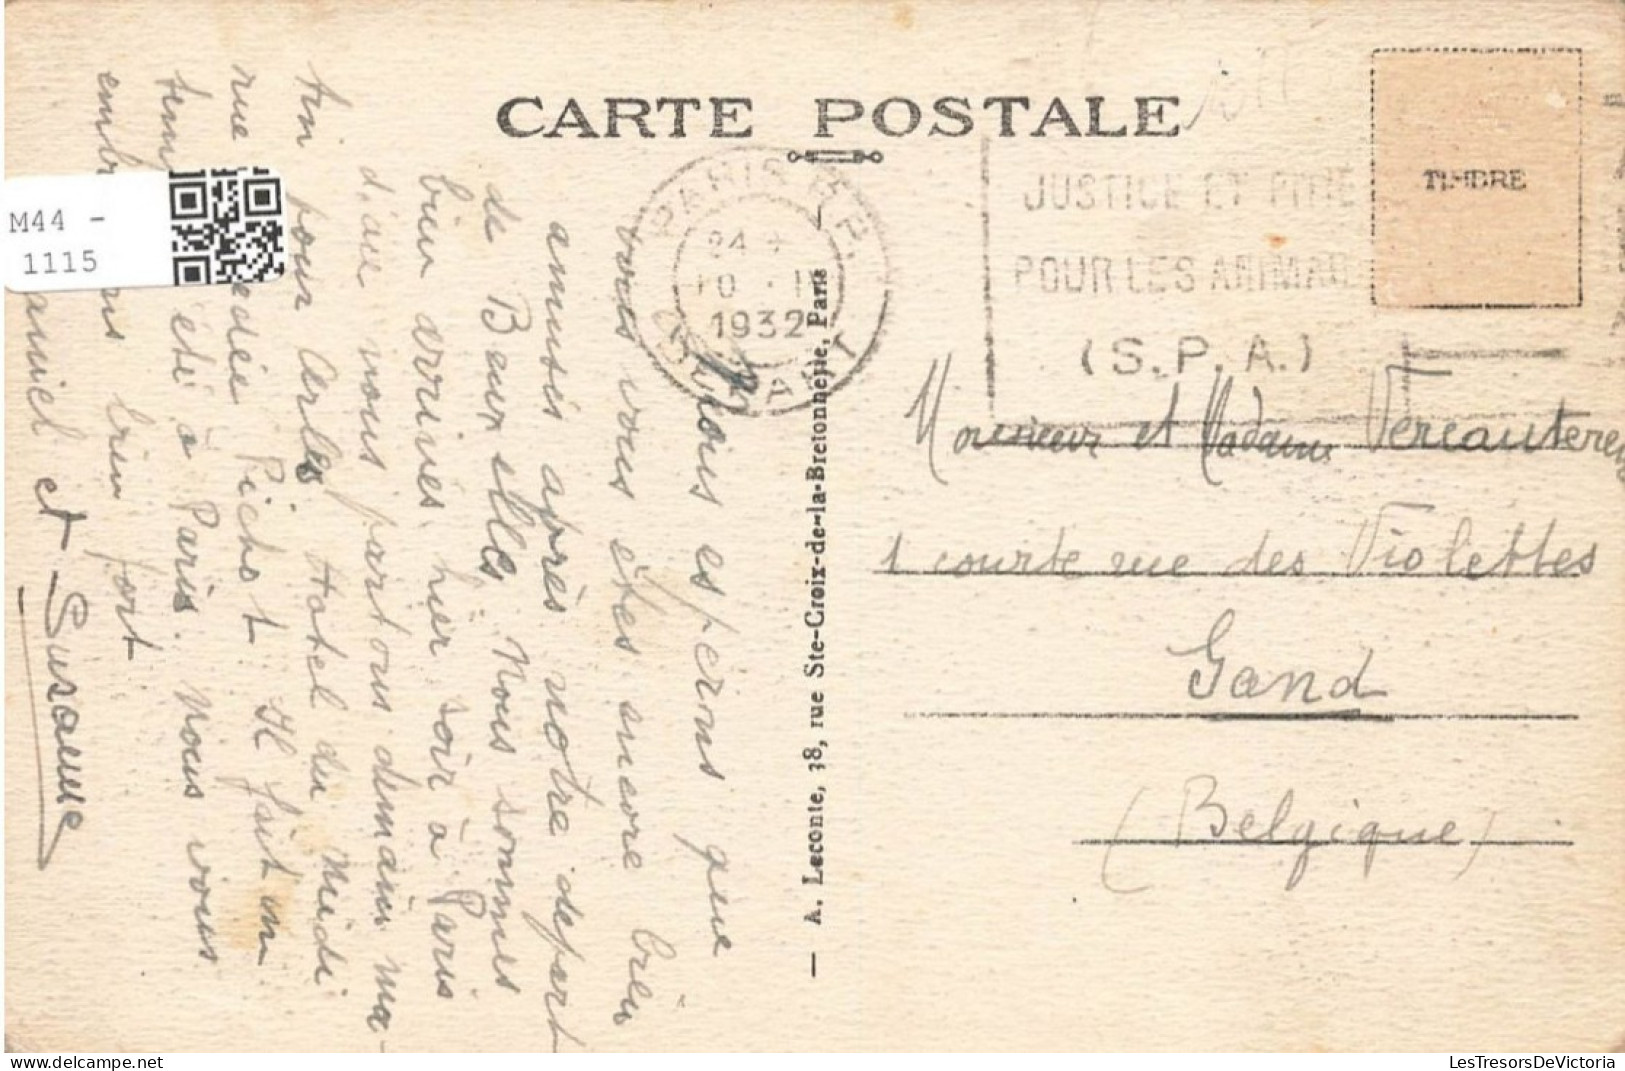 CARTE POSTALE
TIMBRE
PARIS
1932
JUSTICE ET PITIE
POUR LES ANIMAUX
(S.P.A.)
Monsieur et Madame Vercauteren
1 courte rue des Violettes
Gand
(Belgique)
— A. Leconte, 38, rue Ste-Croix-de-la-Bretonnerie, Paris —
Nous espérons que
vous vous êtes encore bien
amusés après notre départ
de Bruxelles. Nous sommes
bien arrivés hier soir à Paris
nous partons demain ma-
tin pour Arles Hotel du Midi
rue Pichot Il fait un
été à Paris. Nous vous
bien fort
et Susanne
M44 -
1115
LesTresorsDeVictoria